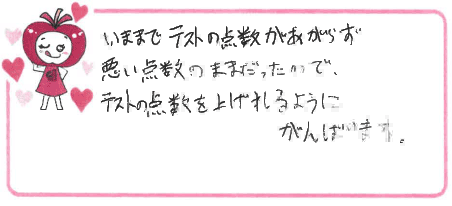 いままで テストの点数があがらず
悪い点数のままだったので、
テストの点数を上げれるように
がんばります。